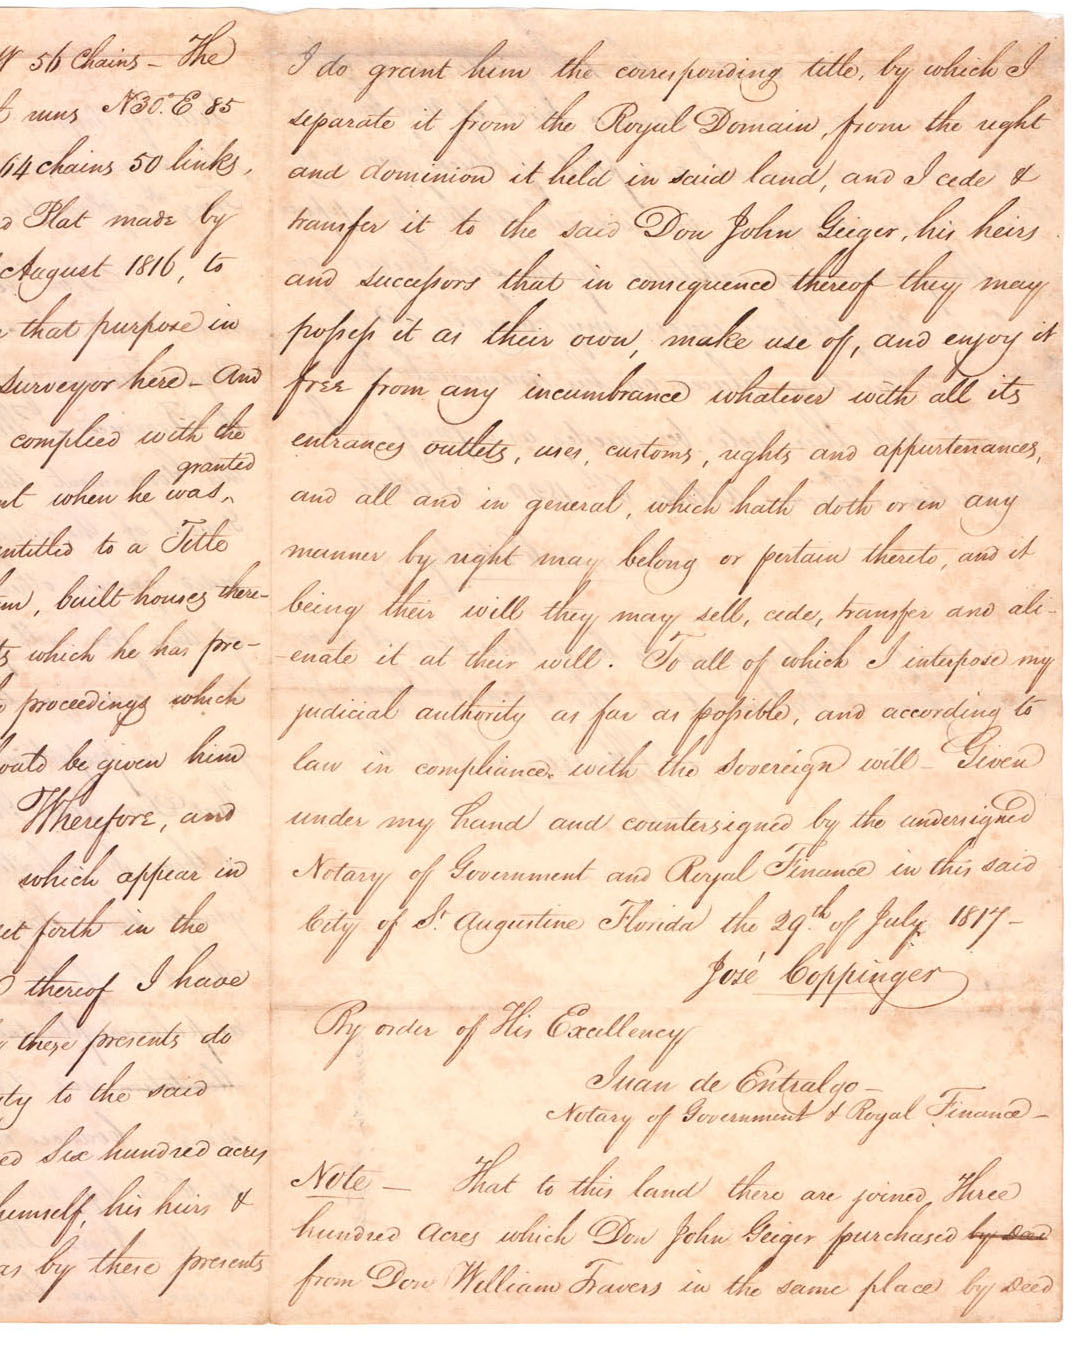 W 56 Chains – The
runs N30.°E 85
64 chains 50 links,
Plat made by
August 1816, to
that purpose in
surveyor here – And
complied with the
granted
when he was ‸
entitled to a Title
, built houses there-
which he has pre-
proceedings which
be given him
Wherefore, and
which appear in
forth in the
thereof I have
these presents do
to the said
Six hundred acres
himself, his heirs &
as by these presents
I do grant him the corresponding title, by which I
separate it from the Royal Domain, from the right
and dominion it held in said land, and I cede &
transfer it to the said Don John Geiger, his heirs
and successors that in consequence thereof they may
possess it as their own, make use of, and enjoy it
free from any incumbrance whatever with all its
entrances outlets, uses, customs, rights and appurtenances,
and all and in general, which hath doth or in any
manner by right may belong or pertain thereto, and it
being their will they may sell, cede, transfer and ali-
-enate it at their will. To all of which I interpose my
judicial authority as far as possible, and according to
law in compliance with the Sovereign will – Given
under my hand and countersigned by the undersigned
Notary of Government and Royal Finance in this said
City of St Augustine Florida the 29.th of July 1817 –
José Coppinger
By order of His Excellency
Juan de Entralgo –
Notary of Government & Royal Finance –
Note – That to this land there are joined Three
hundred Acres which Don John Geiger purchased by Deed
from Don William Travers in the same place by Deed